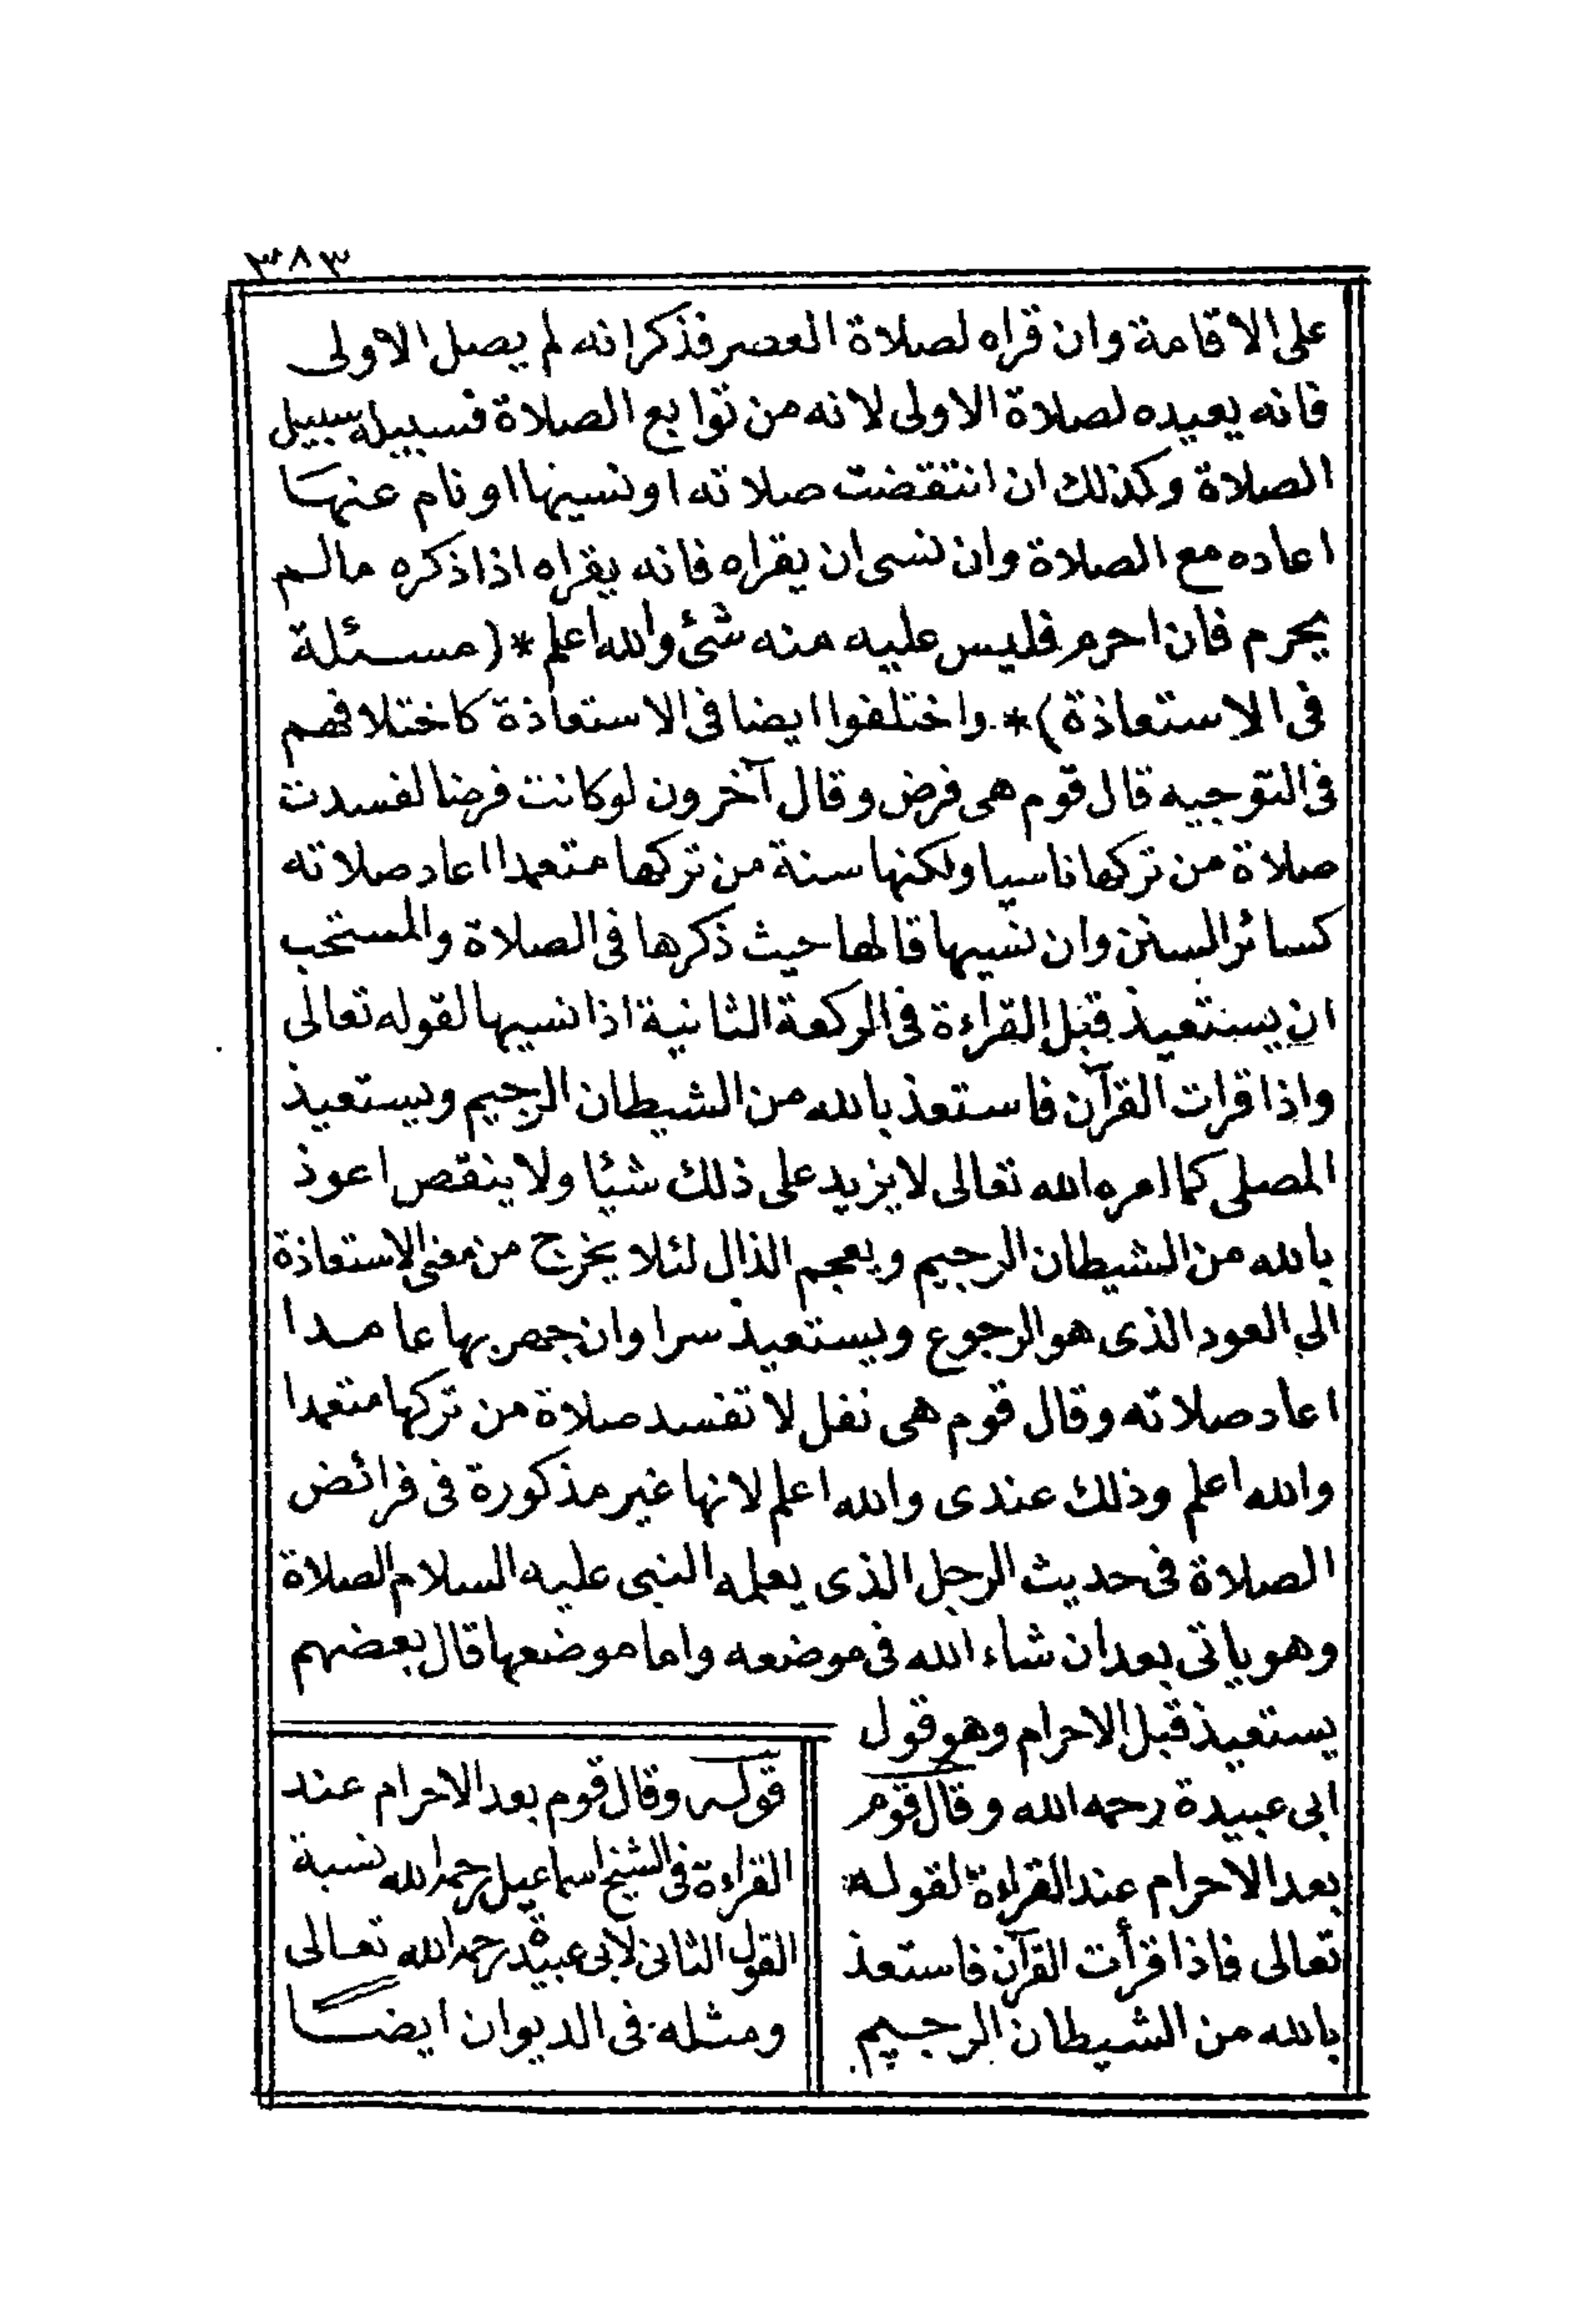 ٣٨٣
على الاقامة وان قراه لصلاة العصر فذكر انه لم يصل الاولى
فانه يعيده لصلاة الاولى لانه من توابع الصلاة فسبيله سبيل
الصلاة وكذلك ان انتقضت صلاته او نسيها او نام عنها
اعاده مع الصلاة وان نسى ان يقراه فانه يقراه اذا ذكره مالم
يحرم فان احرم فليس عليه منه شئ والله اعلم * (مسئلة
فى الاستعاذة) * واختلفوا ايضا فى الاستعاذة كاختلافهم
فى التوجيه قال قوم هى فرض وقال آخرون لو كانت فرضا لفسدت
صلاة من تركها ناسيا ولكنها سنة من تركها متعمدا اعاد صلاته
كسائر السنن وان نسيها قالها حيث ذكرها فى الصلاة والمستحب
ان يستعيذ قبل القراءة فى الركعة الثانية اذا نسيها لقوله تعالى
واذا قرات القرآن فاستعذ بالله من الشيطان الرجيم ويستعيذ
المصلى كما امره الله تعالى لا يزيد على ذلك شيئا ولا ينقص اعوذ
بالله من الشيطان الرجيم ويعجم الذال لئلا يخرج من معنى الاستعاذة
الى العود الذى هو الرجوع ويستعيذ سرا وان جهر بها عامدا
اعاد صلاته وقال قوم هى نفل لا تفسد صلاة من تركها متعمدا
والله اعلم وذلك عندى والله اعلم لانها غير مذكورة فى فرائض
الصلاة فى حديث الرجل الذى يعلمه النبى عليه السلام الصلاة
وهو ياتى بعد ان شاء الله فى موضعه واما موضعها قال بعضهم
يستعيذ قبل الاحرام وهو قول
ابى عبيدة رحمه الله وقال قوم
بعد الاحرام عند القراءة لقوله
تعالى فاذا قرأت القرآن فاستعذ
بالله من الشيطان الرجيم
قوله وقال قوم بعد الاحرام عند
القراءة فى الشيخ اسماعيل رحمه الله نسبة
القول الثانى لابى عبيدة رحمه الله تعالى
ومثله فى الديوان ايضا